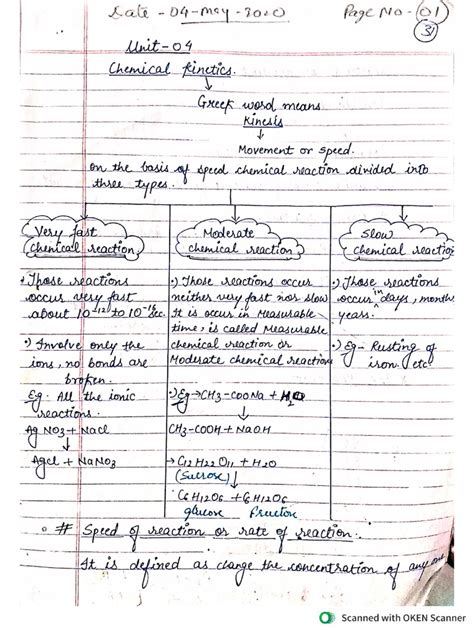 Date - 04-May-2020 Page No - 01
31
Unit-04
Chemical Kinetics.
Greek word means
Kinesis
Movement or speed.
on the basis of speed chemical reaction divided into
three types.
Very fast
chemical reaction
Those reactions
occur very fast
about 10-12 to 10-15 Sec.
•) Involve only the
ions, no bonds are
broken.
Eg. All the ionic
reactions.
Ag NO3 + NaCl
↓
AgCl + NaNO3
Moderate
chemical reaction
•) Those reactions occur
neither very fast nor slow
It is occur in Measurable
time, is called Measurable
chemical reaction or
Moderate chemical reaction
•) Eg → CH3-COONa + H2O
↓
CH3-COOH + NaOH
→ C12H22O11 + H2O
(Sucrose) ↓
C6H12O6 + C6H12O6
glucose Fructose
Slow
chemical reaction
•) Those reactions
occur in days, months
years.
•) Eg - Rusting of
iron. etc
# Speed of reaction or rate of reaction.
It is defined as change the concentration of any one
Scanned with OKEN Scanner